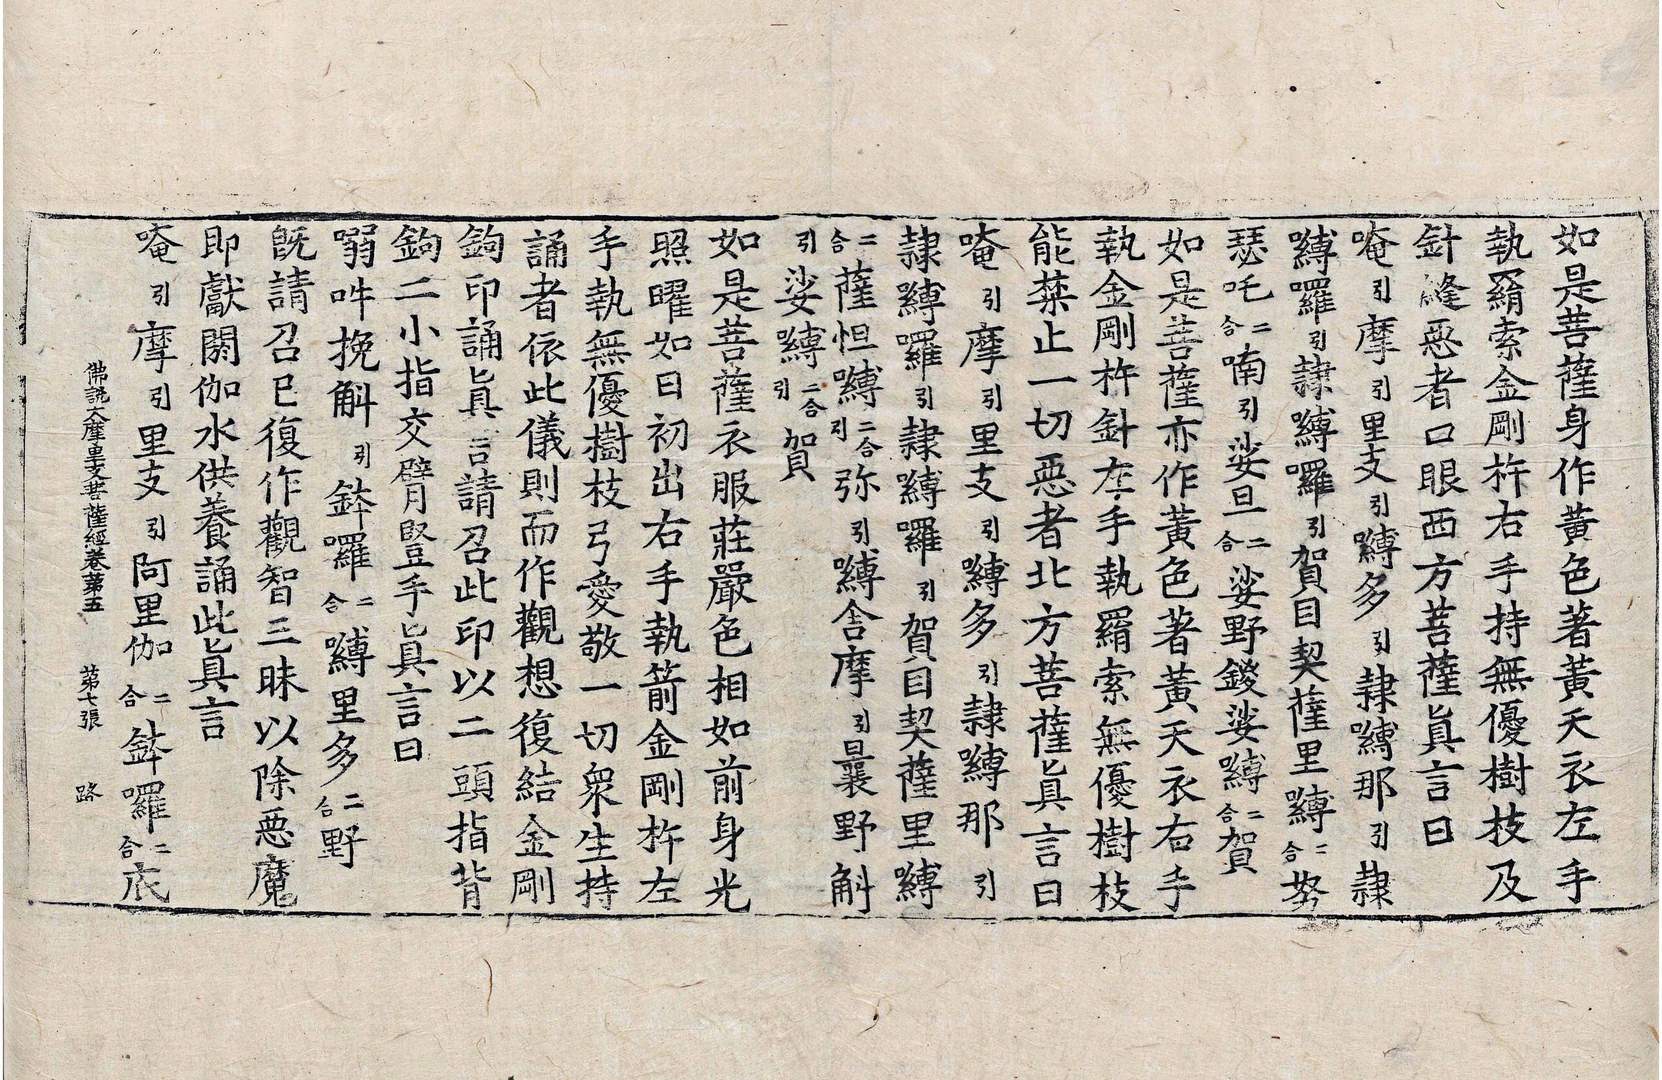 如是菩薩身作黃色著黃天衣左手
執羂索金剛杵右手持無優樹枝及
針縫惡者口眼西方菩薩眞言曰
唵引摩引里支引嚩多引隷嚩那引隷
嚩囉引隷嚩囉引賀目契薩里嚩二合努
瑟吒二合喃引娑旦二合娑野鍐娑嚩二合賀
如是菩薩亦作黃色著黃天衣右手
執金剛杵針左手執羂索無優樹枝
能禁止一切惡者北方菩薩眞言曰
唵引摩引里支引嚩多引隷嚩那引
隷嚩囉引隷嚩囉引賀目契薩里嚩
二合薩怛嚩二合引弥引嚩舍摩引曩野斛
引娑嚩二合引賀
如是菩薩衣服莊嚴色相如前身光
照曜如日初出右手執箭金剛杵左
手執無優樹枝弓愛敬一切衆生持
誦者依此儀則而作觀想復結金剛
鉤印誦眞言請召此印以二頭指背
鉤二小指交臂竪手眞言曰
嗢吽挽斛引鉢囉二合嚩里多二合野
旣請召已復作觀智三昧以除惡魔
即獻閼伽水供養誦此眞言
唵引摩引里支引阿里伽二合鉢囉二合底
佛說大摩里支菩薩經卷第五 第七張 路